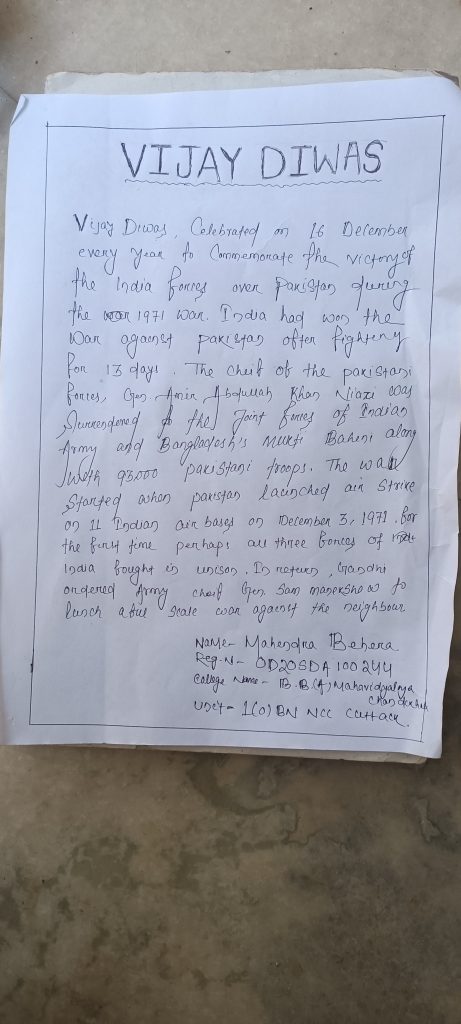 VIJAY DIWAS
Vijay Diwas, Celebrated on 16 December
every year to Commemorate the victory of
the India forces over Pakistan during
the war 1971 war. India had won the
War against pakistan after fighting
for 13 days. The cheif of the pakistani
forces, Gen. Amir Abdullah Khan Niazi was
Surrendered to the Joint forces of Indian
Army and Bangladesh's Mukti Bahini along
with 93000 pakistani troops. The war
Started when pakistan launched air Strike
on 11 Indian air bases on December 3, 1971. for
the first time perhaps all three forces of
India fought in unison. In return, Gandhi
ordered Army cheif Gen Sam manekshaw to
lunch a full scale war against the neighbour
Name- Mahendra Behera
Reg.N- OD20SDA100244
College Name- B.B.(A) Mahavidyalaya
UNIT- 1(O) BN NCC Cuttack.